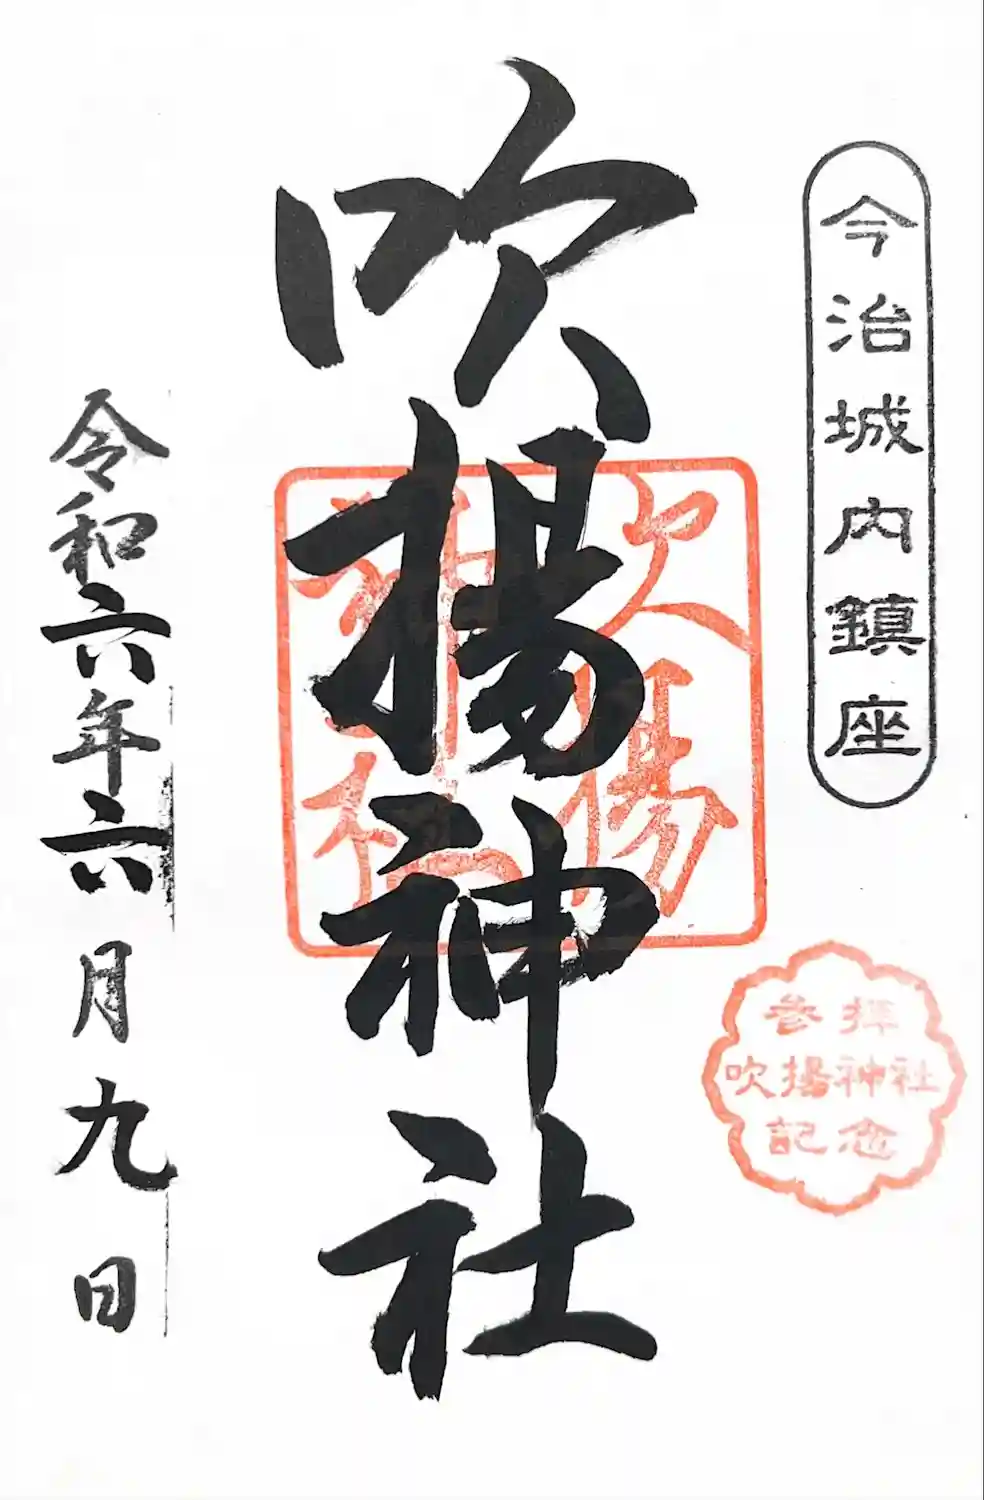 今治城内鎮座
参拝
吹揚神社
記念
吹揚神社
吹揚神社
令和六年六月九日